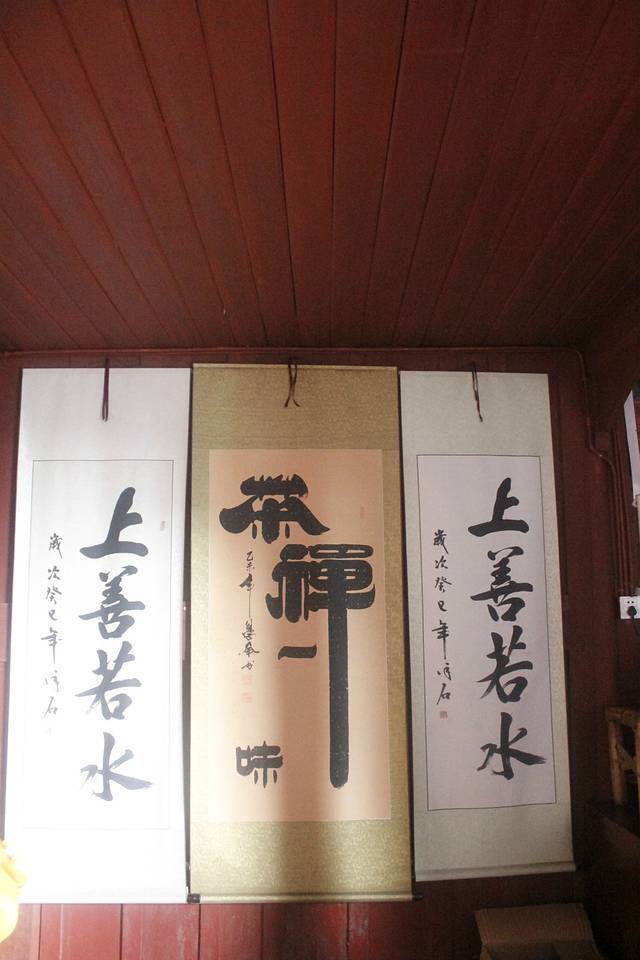 上善若水
歲次癸巳年
茶禪一味
乙未年
上善若水
歲次癸巳年